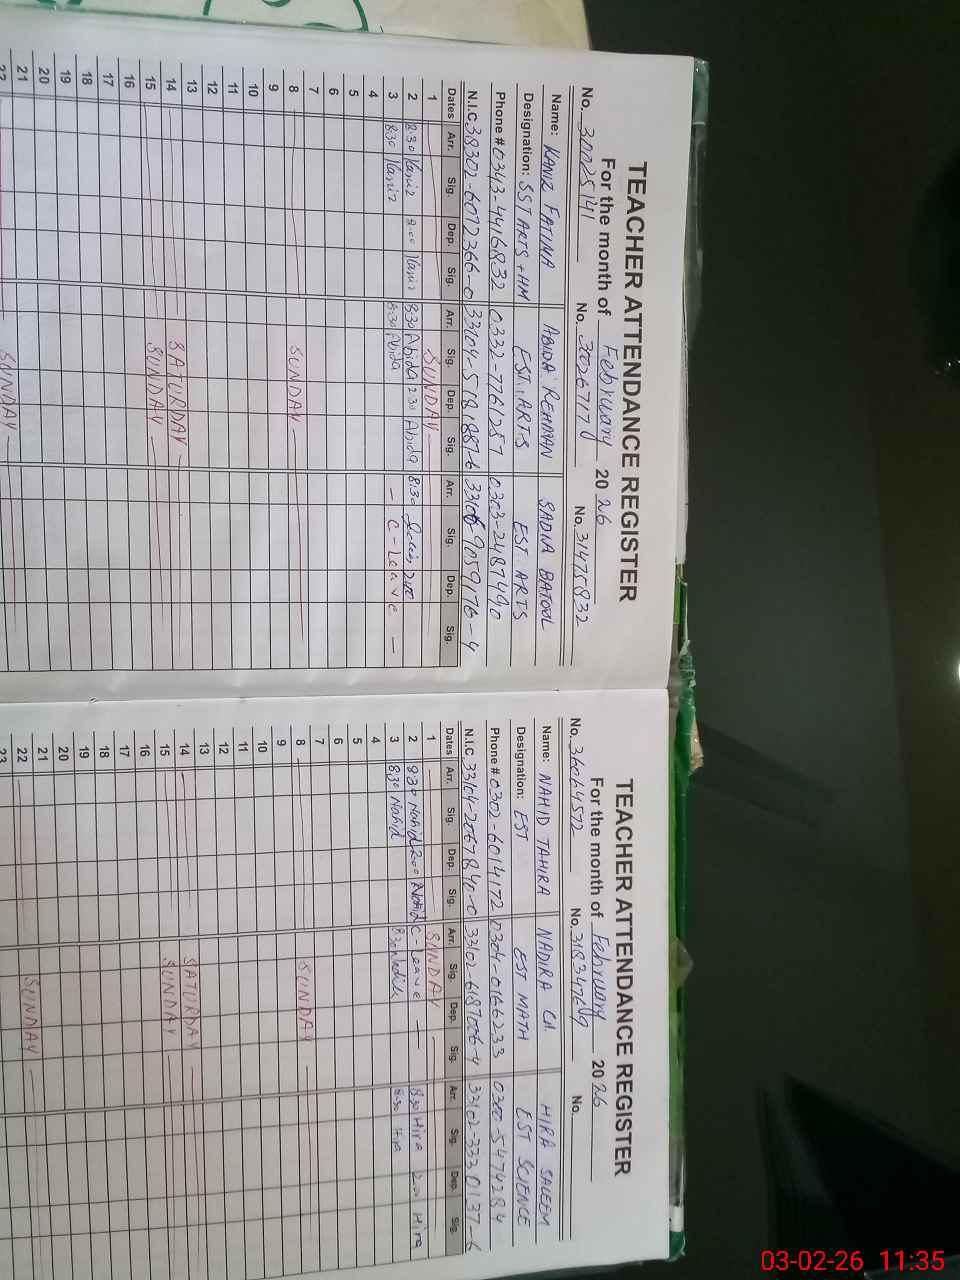 TEACHER ATTENDANCE REGISTER
For the month of February 2026
No. 30025141 No. 30026717 No. 31475832
Name: KANIZ FATIMA ABIDA REHMAN SADIA BATOOL
Designation: SST ARTS + HM EST. ARTS EST ARTS
Phone # 0343-4416832 0332-7761257 0303-2487490
N.I.C 38302-6072366-0 33104-5781887-6 33106-9059176-4
Dates Arr. Sig. Dep. Sig. Arr. Sig. Dep. Sig. Arr. Sig. Dep. Sig.
1 SUNDAY
2 8:30 Kaniz 2:00 Kaniz 8:30 Abida 2:30 Abida 8:30
3 8:30 Kaniz 8:30 Abida - C-Leave -
4
5
6
7
8 SUNDAY
9
10
11
12
13
14 SATURDAY
15 SUNDAY
16
17
18
19
20
21
22 SUNDAY
TEACHER ATTENDANCE REGISTER
For the month of February 2026
No. 36064572 No. 31834769 No.
Name: NAHID TAHIRA NADIRA CH. HIRA SALEEM
Designation: EST EST MATH EST SCIENCE
Phone # 0302-6014172 0304-0166233 0300-5474284
N.I.C 33104-2067840-0 33102-6187056-4 33102-3330137-6
Dates Arr. Sig. Dep. Sig. Arr. Sig. Dep. Sig. Arr. Sig. Dep. Sig.
1 SUNDAY
2 8:30 Nahid 2:00 Nahid C-Leave 8:30 Hira 2:00 Hira
3 8:30 Nahid 8:30 Nadira 8:30 Hira
4
5
6
7
8 SUNDAY
9
10
11
12
13
14 SATURDAY
15 SUNDAY
16
17
18
19
20
21
22 SUNDAY
23
03-02-26 11:35